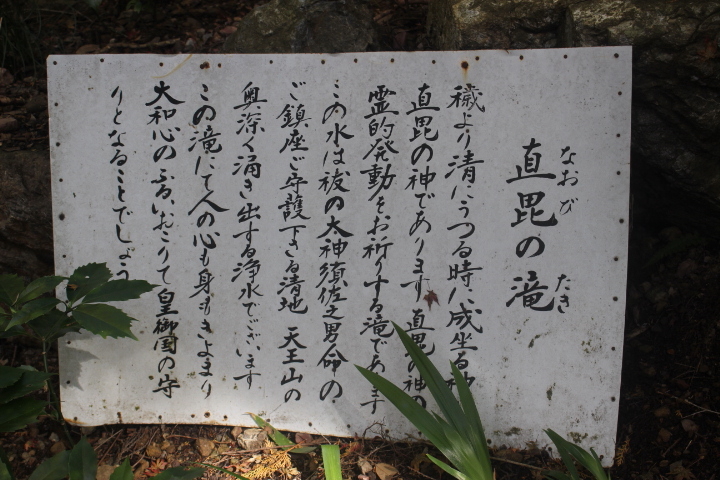 直毘の滝
なおび
たき
穢より清にうつる時に成坐る神
直毘の神であります 直毘の神の
霊的発動をお祈りする滝であります
この水は祓の大神須佐之男命の
ご鎮座ご守護下さる清地 天王山の
奥深く涌き出する浄水でございます
この滝にて人の心も身もきよまり
大和心のふるいおこりて皇御国の守
りとなることでしょう